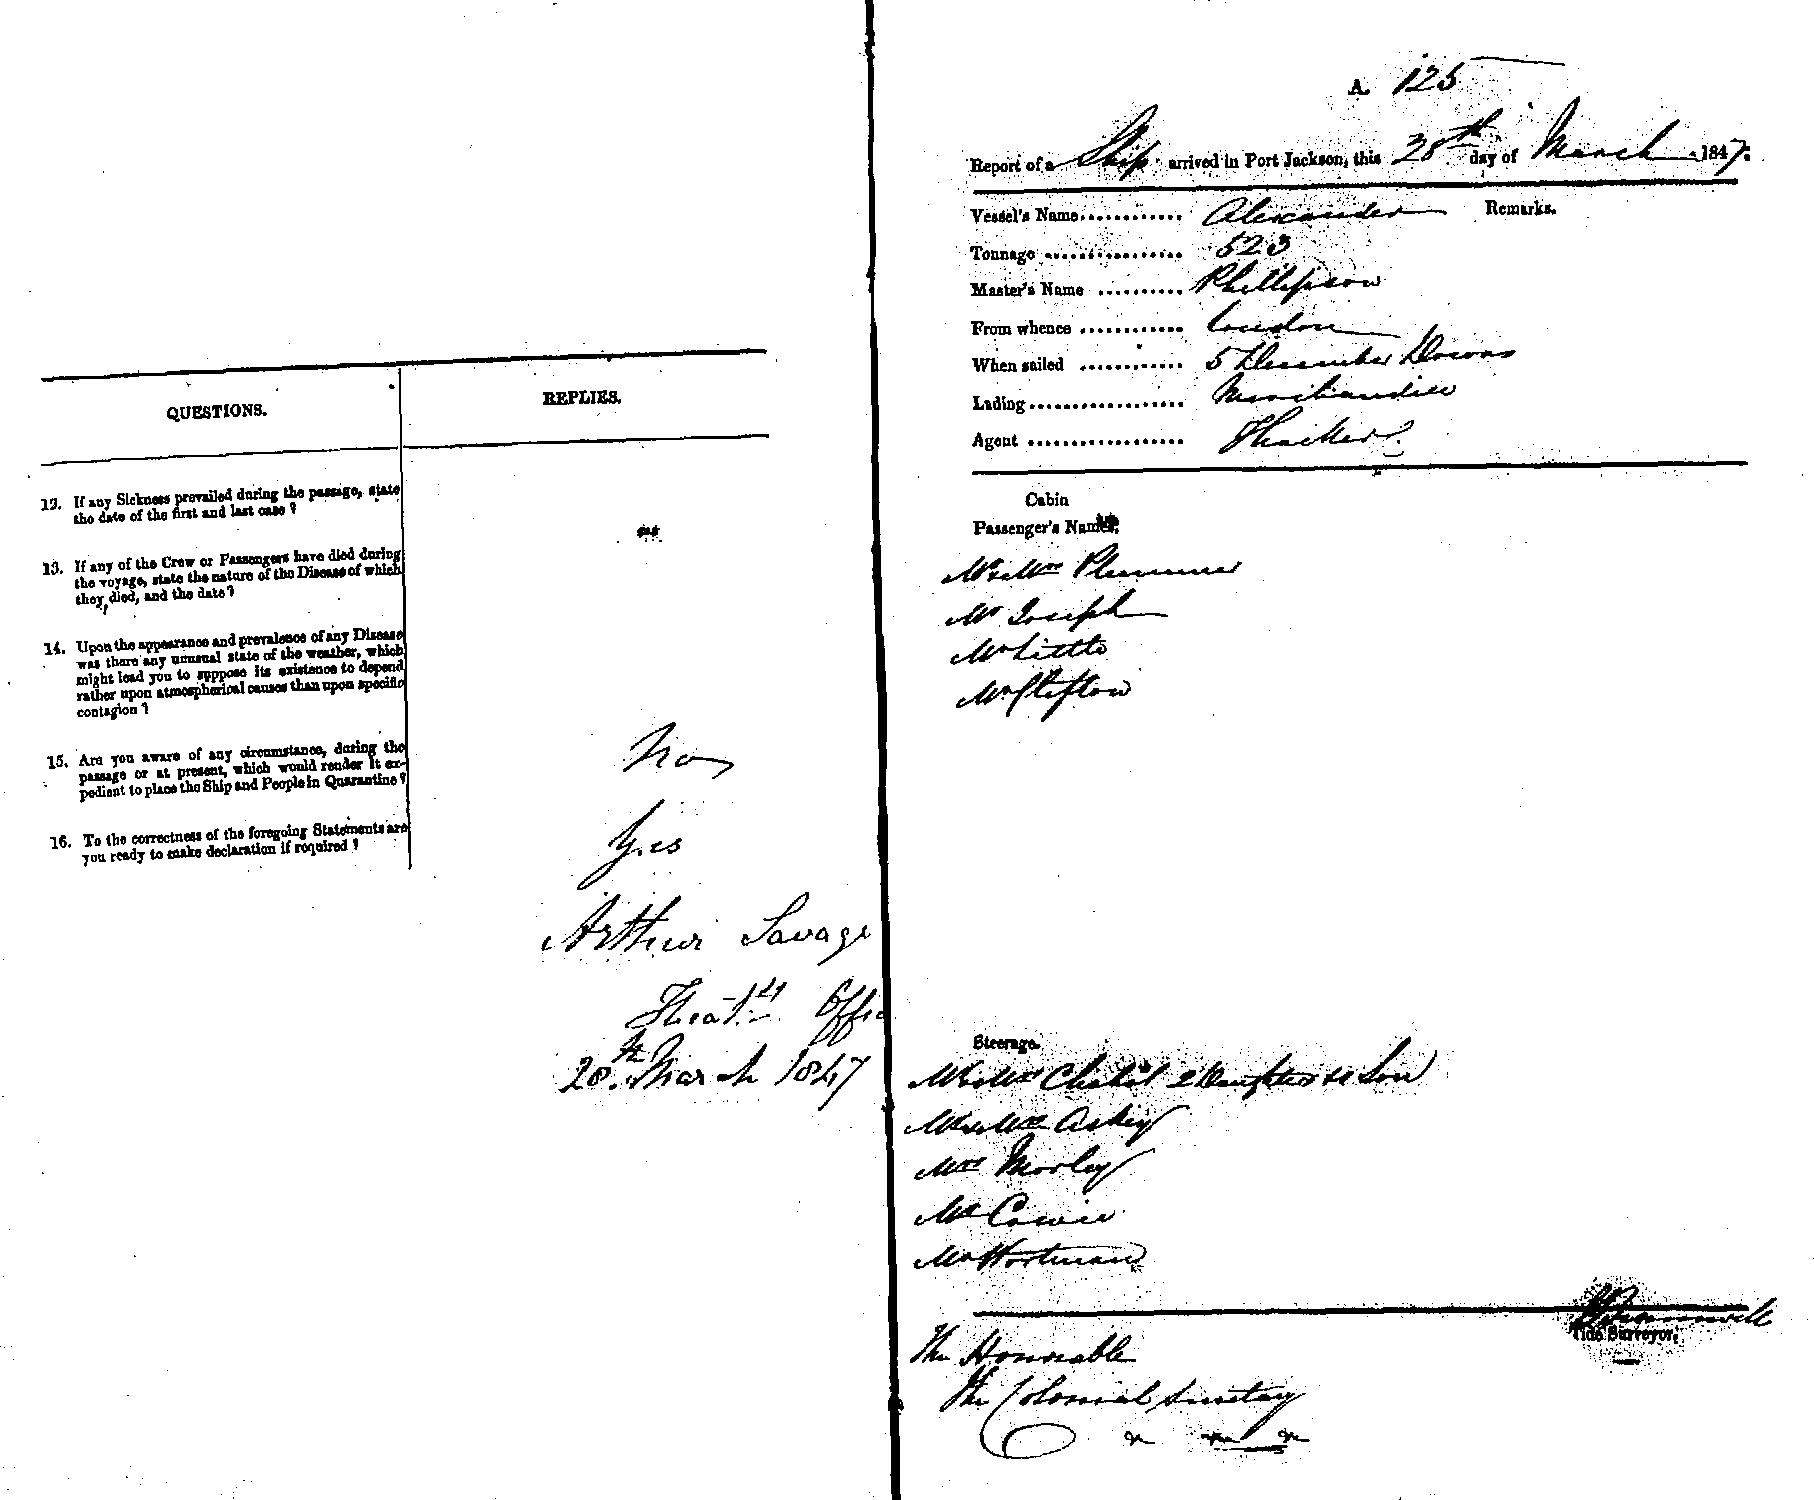 QUESTIONS.
REPLIES.
12. If any Sickness prevailed during the passage, state
the date of the first and last case ?
13. If any of the Crew or Passengers have died during
the voyage, state the nature of the Disease of which
they died, and the date ?
14. Upon the appearance and prevalence of any Disease
was there any unusual state of the weather, which
might lead you to suppose its existence to depend
rather upon atmospherical causes than upon specific
contagion ?
15. Are you aware of any circumstance, during the
passage or at present, which would render it ex-
pedient to place the Ship and People in Quarantine ?
No
16. To the correctness of the foregoing Statements are
you ready to make declaration if required ?
Yes
Arthur Savage
Health Offic
28th March 1847
A. 125
Report of a Ship arrived in Port Jackson, this 28th day of March 1847.
Vessel's Name............ Alexander
Remarks.
Tonnage ................ 523
Master's Name .......... Phillipson
From whence ............ London
When sailed ............ 5 December Downs
Lading.................. Merchandise
Agent .................. Thacker
Cabin
Passenger's Names.
Mr & Mrs Plummer
Mr Joseph
Mr Little
Mr Clifton
Steerage.
Mr & Mrs 2 Daughters & 1 Son
Mr & Mrs Askey
Mrs Morley
Mr Cowie
Mr Wortman
Tide Surveyor.
The Honorable
The Colonial Secretary